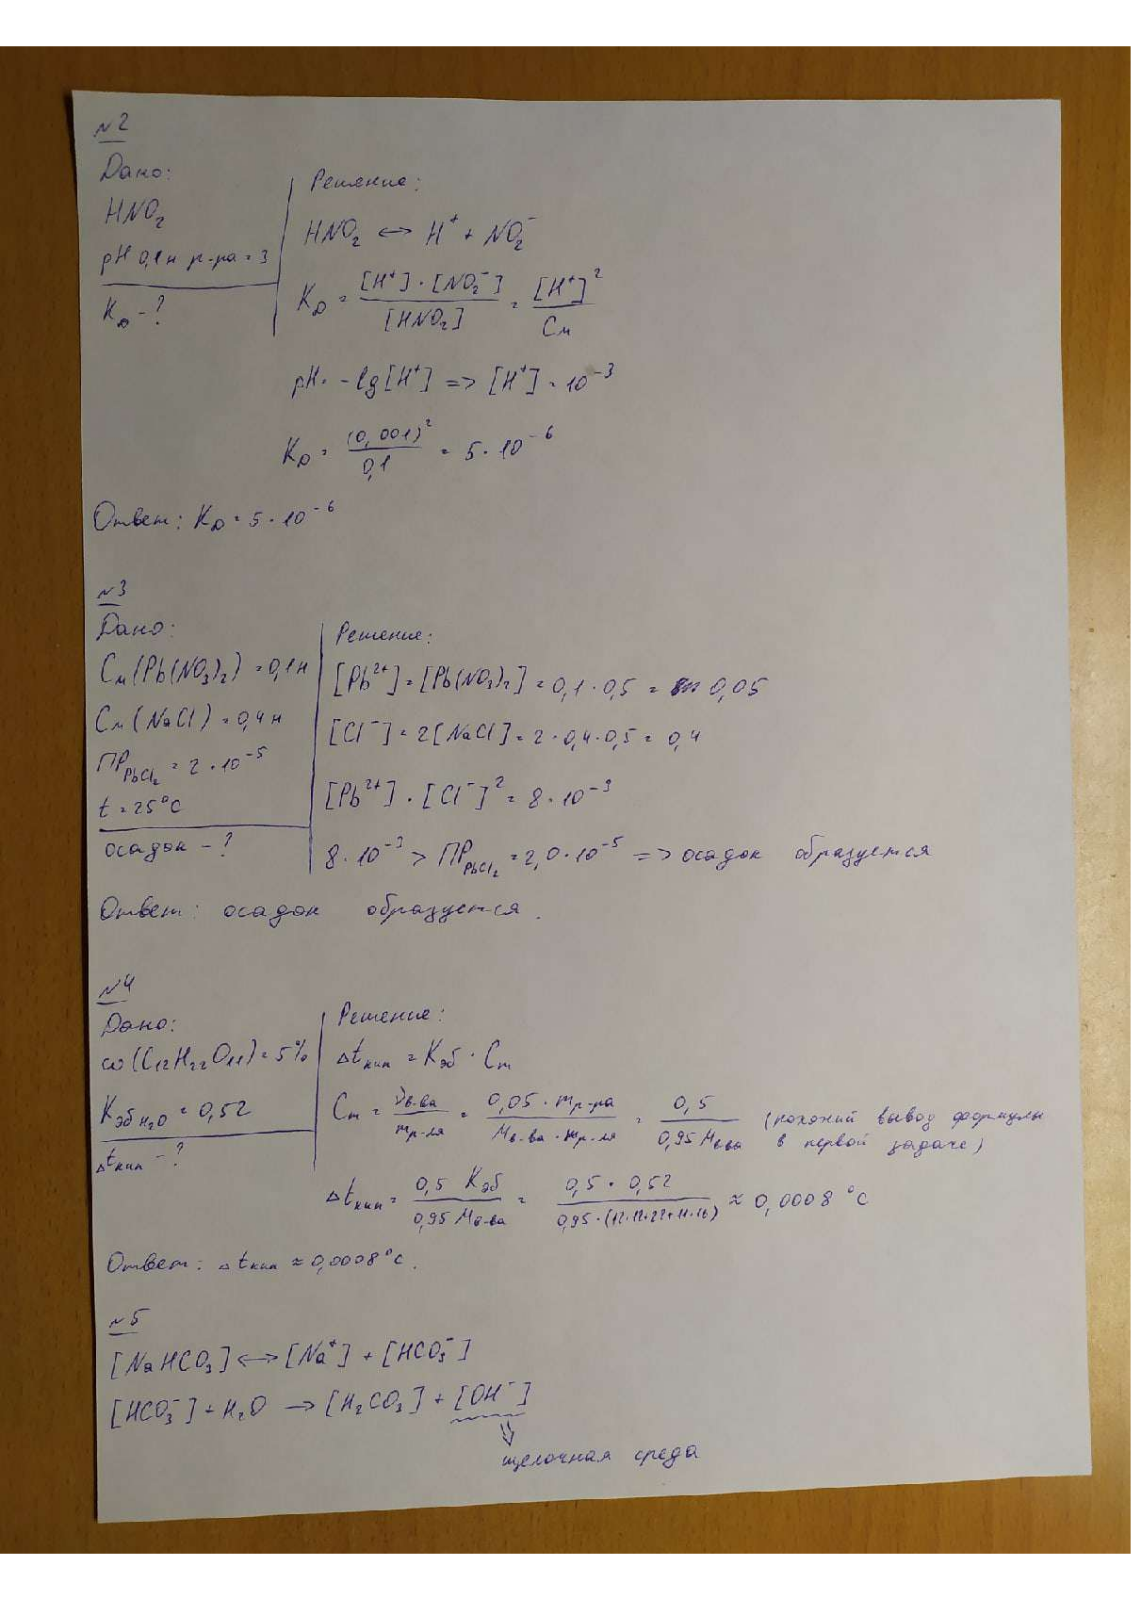 №2
Дано:
HNO₂
pH 0,1н р-ра = 3
K_D - ?
Решение:
HNO₂ ↔ H⁺ + NO₂⁻
K_D = [H⁺]·[NO₂⁻] / [HNO₂] = [H⁺]² / Cм
pH = -lg[H⁺] => [H⁺] = 10⁻³
K_D = (0,001)² / 0,1 = 5·10⁻⁶
Ответ: K_D = 5·10⁻⁶
№3
Дано:
Cм(Pb(NO₃)₂) = 0,1н
Cм(NaCl) = 0,4н
ПР_PbCl₂ = 2·10⁻⁵
t = 25°C
осадок - ?
Решение:
[Pb²⁺] = [Pb(NO₃)₂] = 0,1·0,5 = 0,05
[Cl⁻] = 2[NaCl] = 2·0,4·0,5 = 0,4
[Pb²⁺]·[Cl⁻]² = 8·10⁻³
8·10⁻³ > ПР_PbCl₂ = 2,0·10⁻⁵ => осадок образуется
Ответ: осадок образуется.
№4
Дано:
ω(C₁₂H₂₂O₁₁) = 5%
Kэб H₂O = 0,52
Δtкип - ?
Решение:
Δtкип = Kэб · Cm
Cm = νв-ва / mр-ля = 0,05·mр-ра / Mв-ва·mр-ля = 0,5 / 0,95 Mв-ва (похожий вывод формулы
в первой задаче)
Δtкип = 0,5 Kэб / 0,95 Mв-ва = 0,5·0,52 / 0,95·(12·12+22+11·16) ≈ 0,0008 °C
Ответ: Δtкип ≈ 0,0008°C.
№5
[NaHCO₃] ↔ [Na⁺] + [HCO₃⁻]
[HCO₃⁻] + H₂O → [H₂CO₃] + [OH⁻]
⇓
щелочная среда